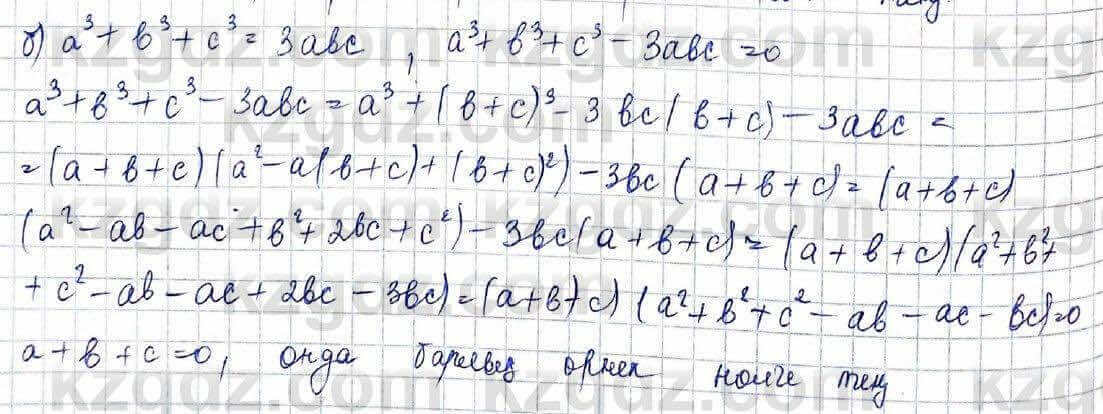 б) a³ + b³ + c³ = 3abc , a³ + b³ + c³ - 3abc = 0
a³ + b³ + c³ - 3abc = a³ + (b + c)³ - 3bc(b + c) - 3abc =
= (a + b + c)(a² - a(b + c) + (b + c)²) - 3bc(a + b + c) = (a + b + c)
(a² - ab - ac + b² + 2bc + c²) - 3bc(a + b + c) = (a + b + c)(a² + b² +
+ c² - ab - ac + 2bc - 3bc) = (a + b + c)(a² + b² + c² - ab - ac - bc) = 0
a + b + c = 0, онда өрнек нөлге тең
kzgdz.com